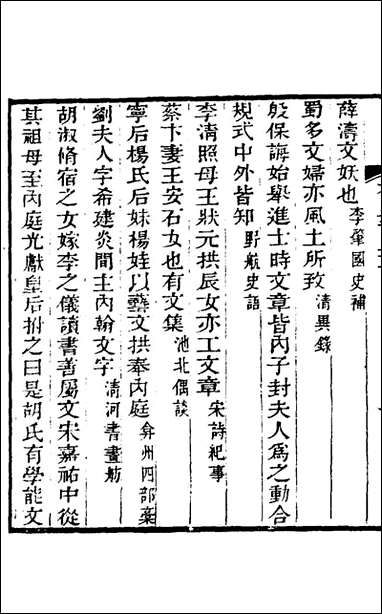 薛濤文妖也 李肇國史補
蜀多文婦亦風土所致 清異錄
殷保誨始舉進士時文章皆內子封夫人爲之動合
規式中外皆知 野航史語
李清照母王狀元拱辰女亦工文章 宋詩紀事
蔡卞妻王安石女也有文集 池北偶談
寧后楊氏后妹楊娃以藝文拱奉內庭 弇州四部藁
劉夫人字希建炎間主內翰文字 清河書畫舫
胡淑脩宿之女嫁李之儀讀書善屬文宋嘉祐中從
其祖母至內庭光獻皇后拊之曰是胡氏有學能文